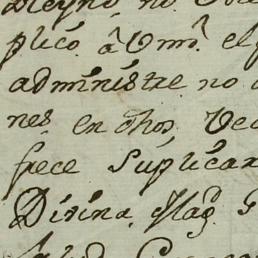 plico. â Vm.^s el
administre no
nes en dhos Ve
frece Suplicar
Divina Mag.^d